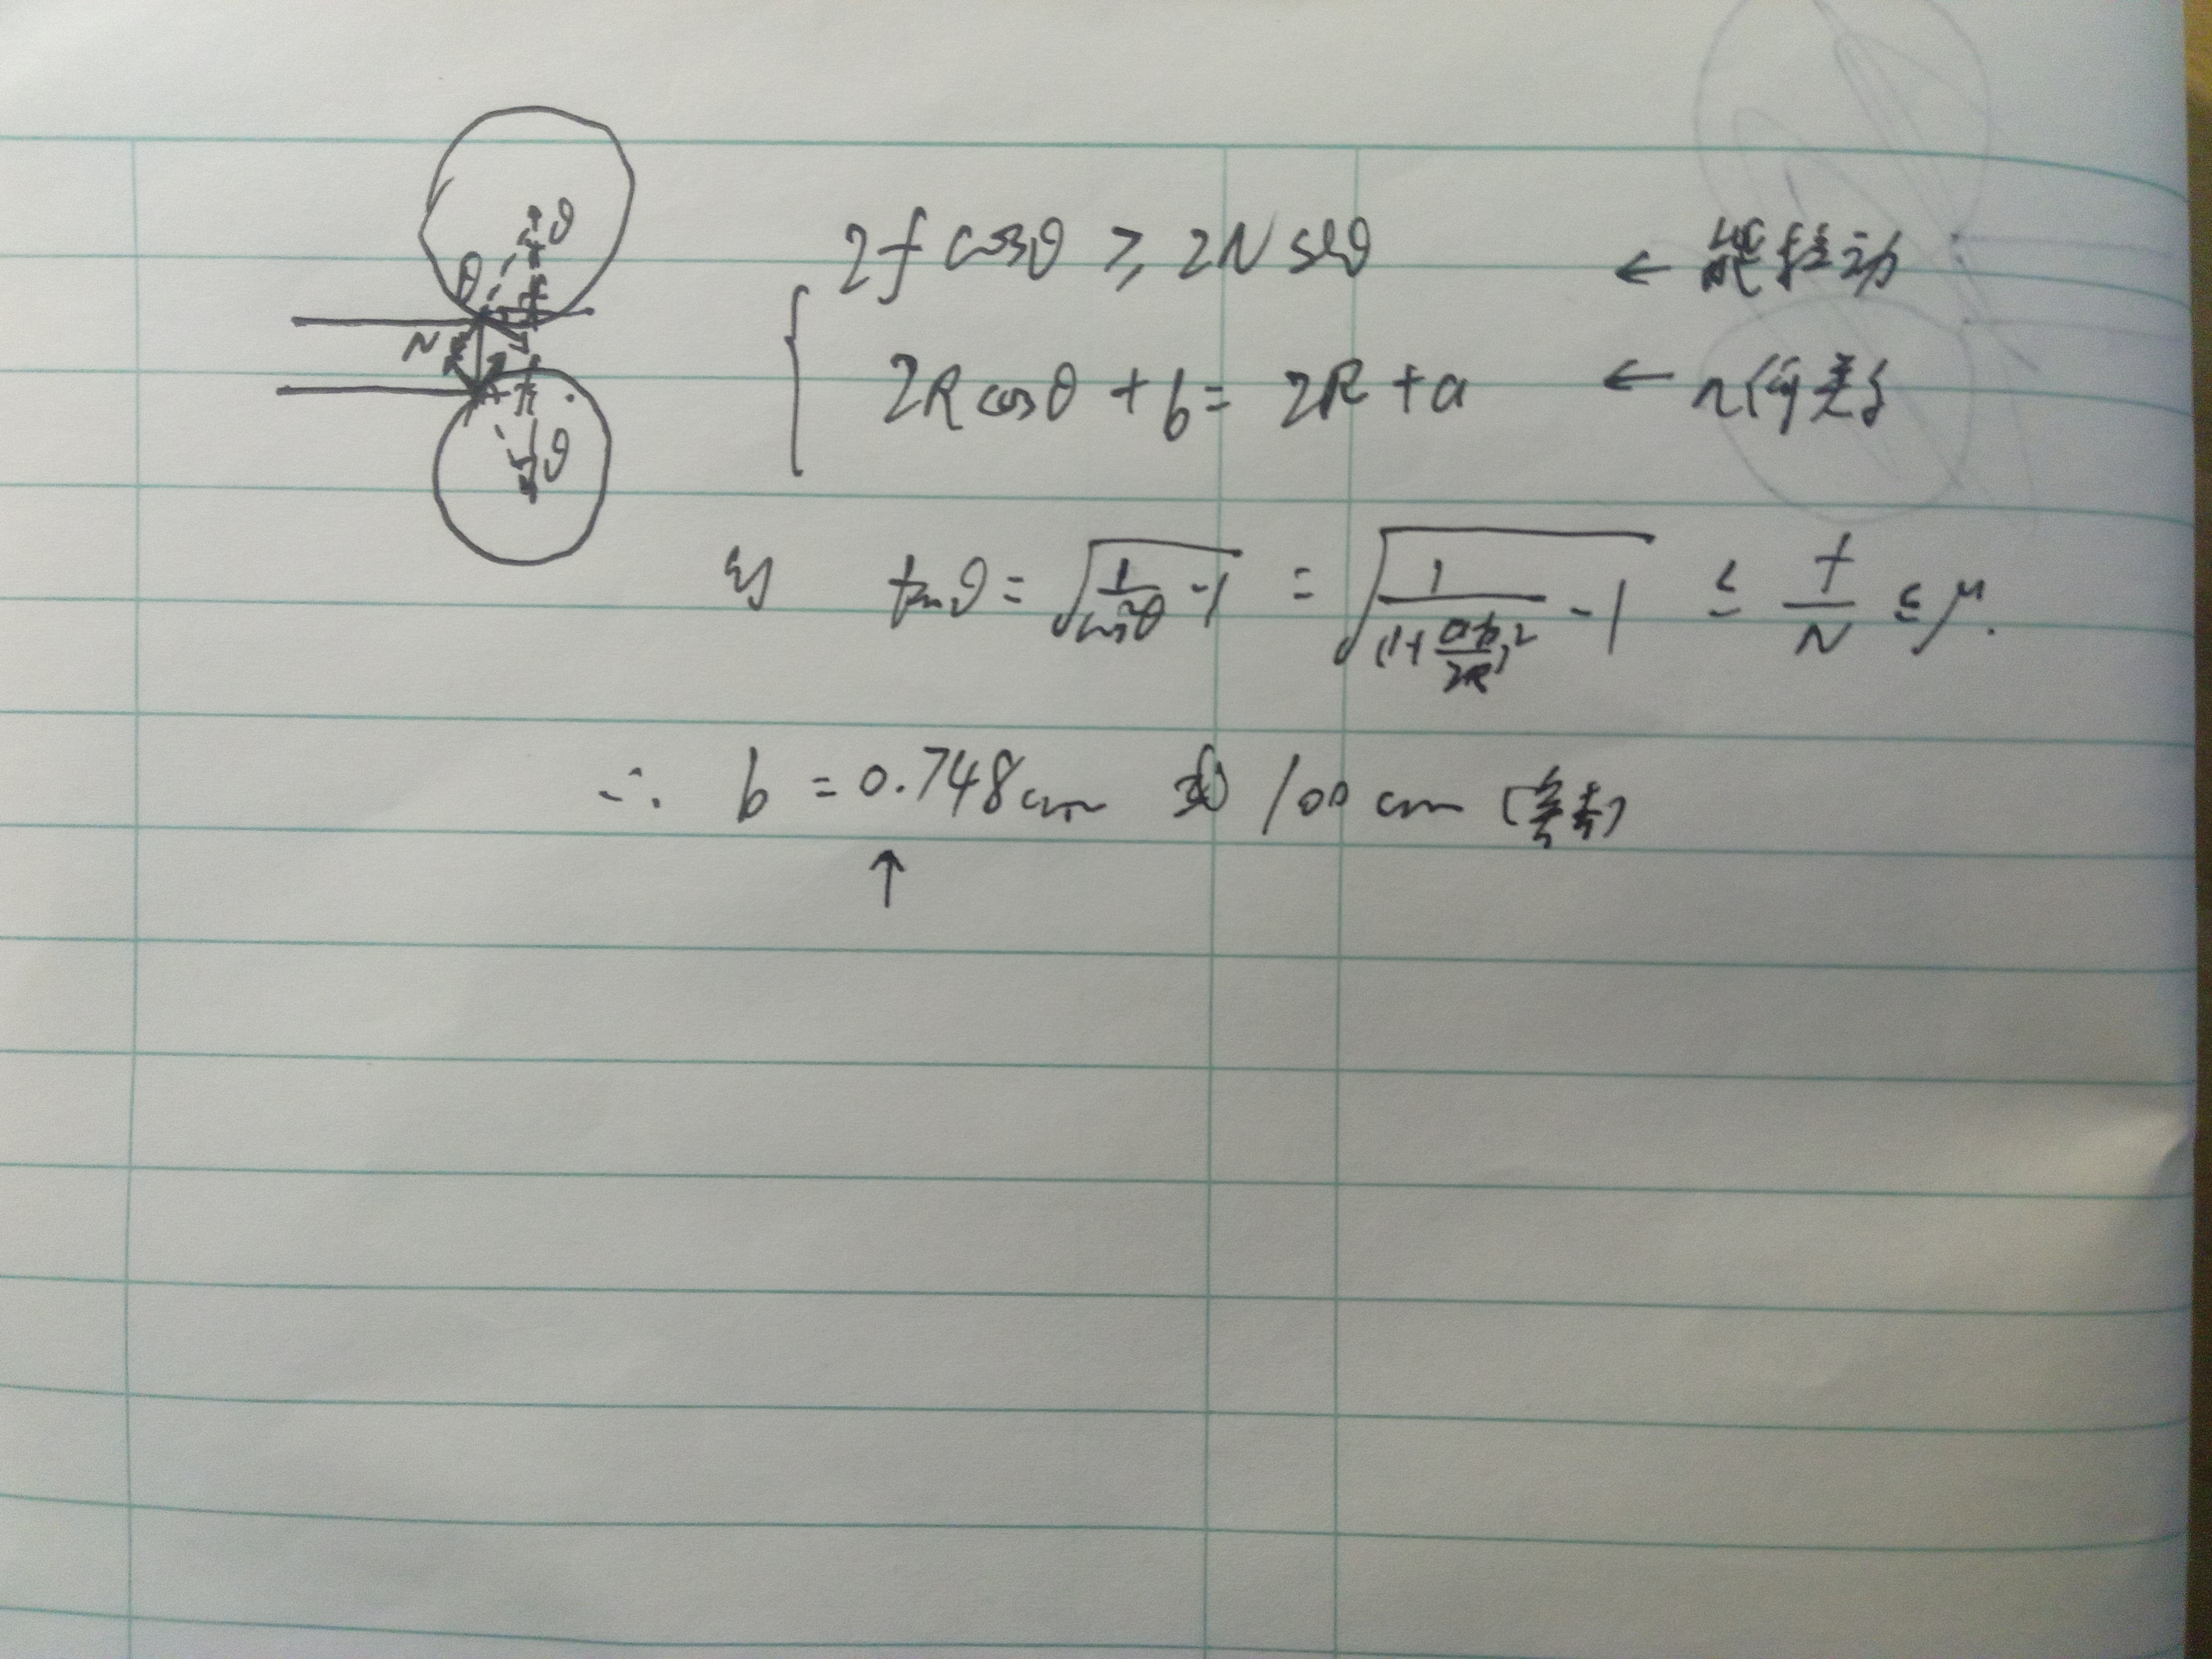 θ
θ
N
θ
2f cosθ ≥ 2N sinθ ← 能拉动
2R cosθ + b = 2R + a ← 几何关系
则 tanθ = √(1/cos²θ - 1) = √(1/(1+(a-b)/2R)² - 1) ≤ f/N ≤ μ.
∴ b = 0.748cm 或 100 cm (舍去)
↑